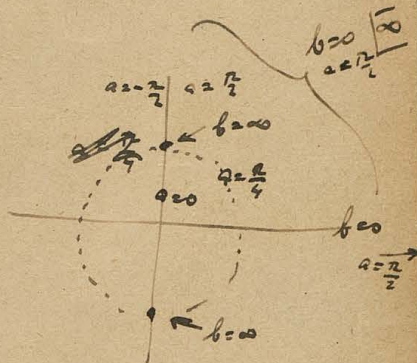 b=0 ∞
a=π/2
a=-π/2 a=π/2
b=∞
a=π/4
a=0
b=0
a=π/2
b=∞